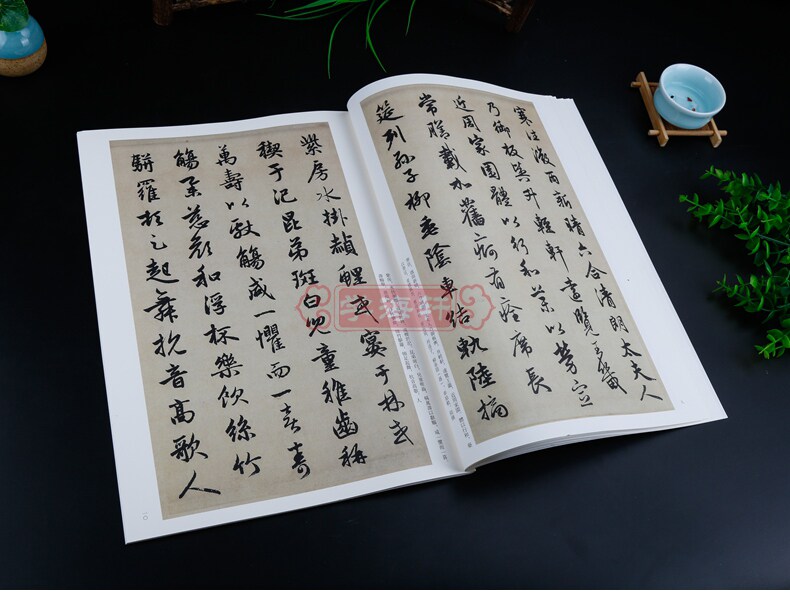 寒往微雨新晴六合清朗太夫人
乃御板輿升輕軒遠覽王畿
近周家園體以行和藥以勞宣
常膳載加舊痾有痊席長
筵列孫子柳垂陰車結軌陸摘
紫房水掛赬鯉或宴于林或
禊于汜昆弟斑白兒童稚齒稱
萬壽以獻觴咸一懼而一喜壽
觴舉慈顏和浮杯樂飲絲竹
駢羅頓足起舞抗音高歌人
一〇